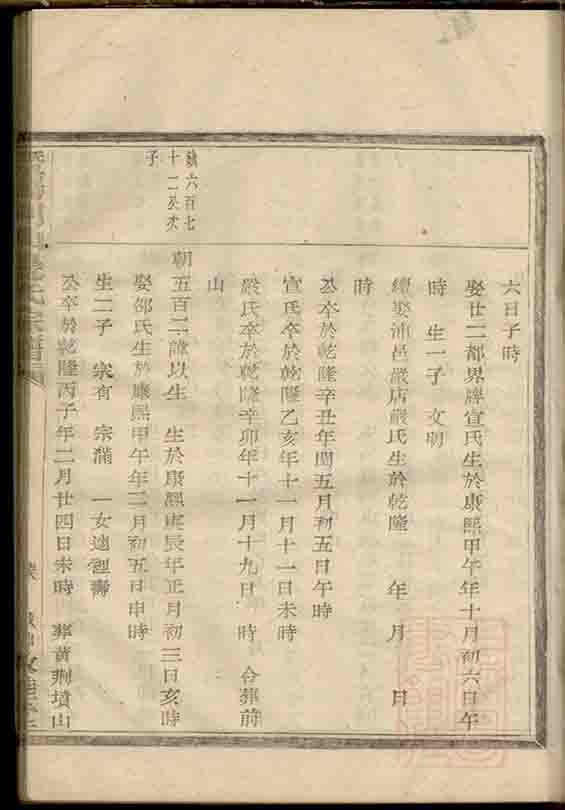 六日子時
娶廿二都界牌宣氏生於康熙甲午年十月初六日午
時 生一子 文明
續娶浦邑嚴店嚴氏生於乾隆 年 月 日
時
公卒於乾隆辛丑年閏五月初五日午時
宣氏卒於乾隆乙亥年十一月十一日未時
嚴氏卒於乾隆辛卯年十一月十九日 時 合葬前
山
六百七
十二公次
子
朝五百二諱以生 生於康熙庚辰年正月初三日亥時
娶邵氏生於康熙甲午年三月初五日申時
生二子 宗有 宗滿 一女適
公卒於乾隆丙子年二月廿四日未時 葬黃荆墳山
氏宗譜